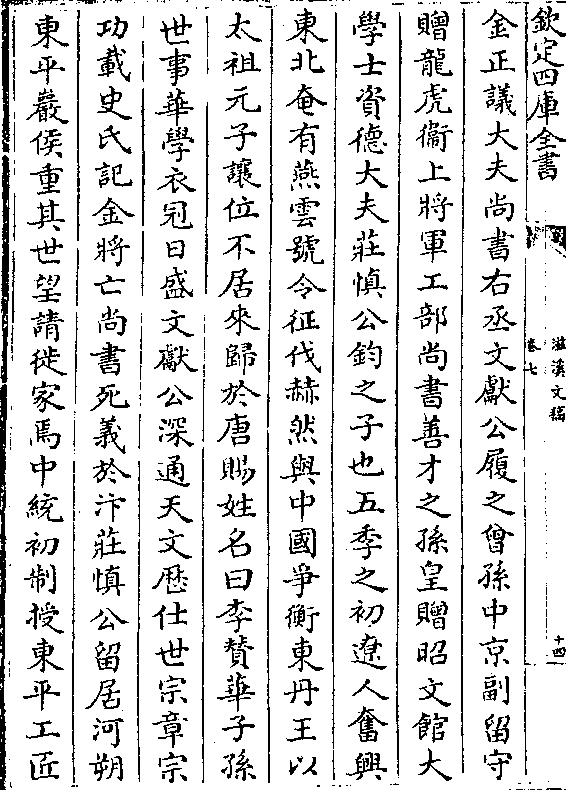 欽定四庫全書
滋溪文稿
卷七
十四
金正議大夫尚書右丞文獻公履之曾孫中京副留守
贈龍虎衞上將軍工部尚書善才之孫皇贈昭文館大
學士資德大夫莊慎公鈞之子也五季之初遼人奮興
東北奄有燕雲號令征伐赫然與中國爭衡東丹王以
太祖元子讓位不居來歸於唐賜姓名曰李贊華子孫
世事華學衣冠日盛文獻公深通天文歴仕世宗章宗
功載史氏記金將亡尚書死義於汴莊慎公留居河朔
東平嚴侯重其世望請徙家焉中統初制授東平工匠